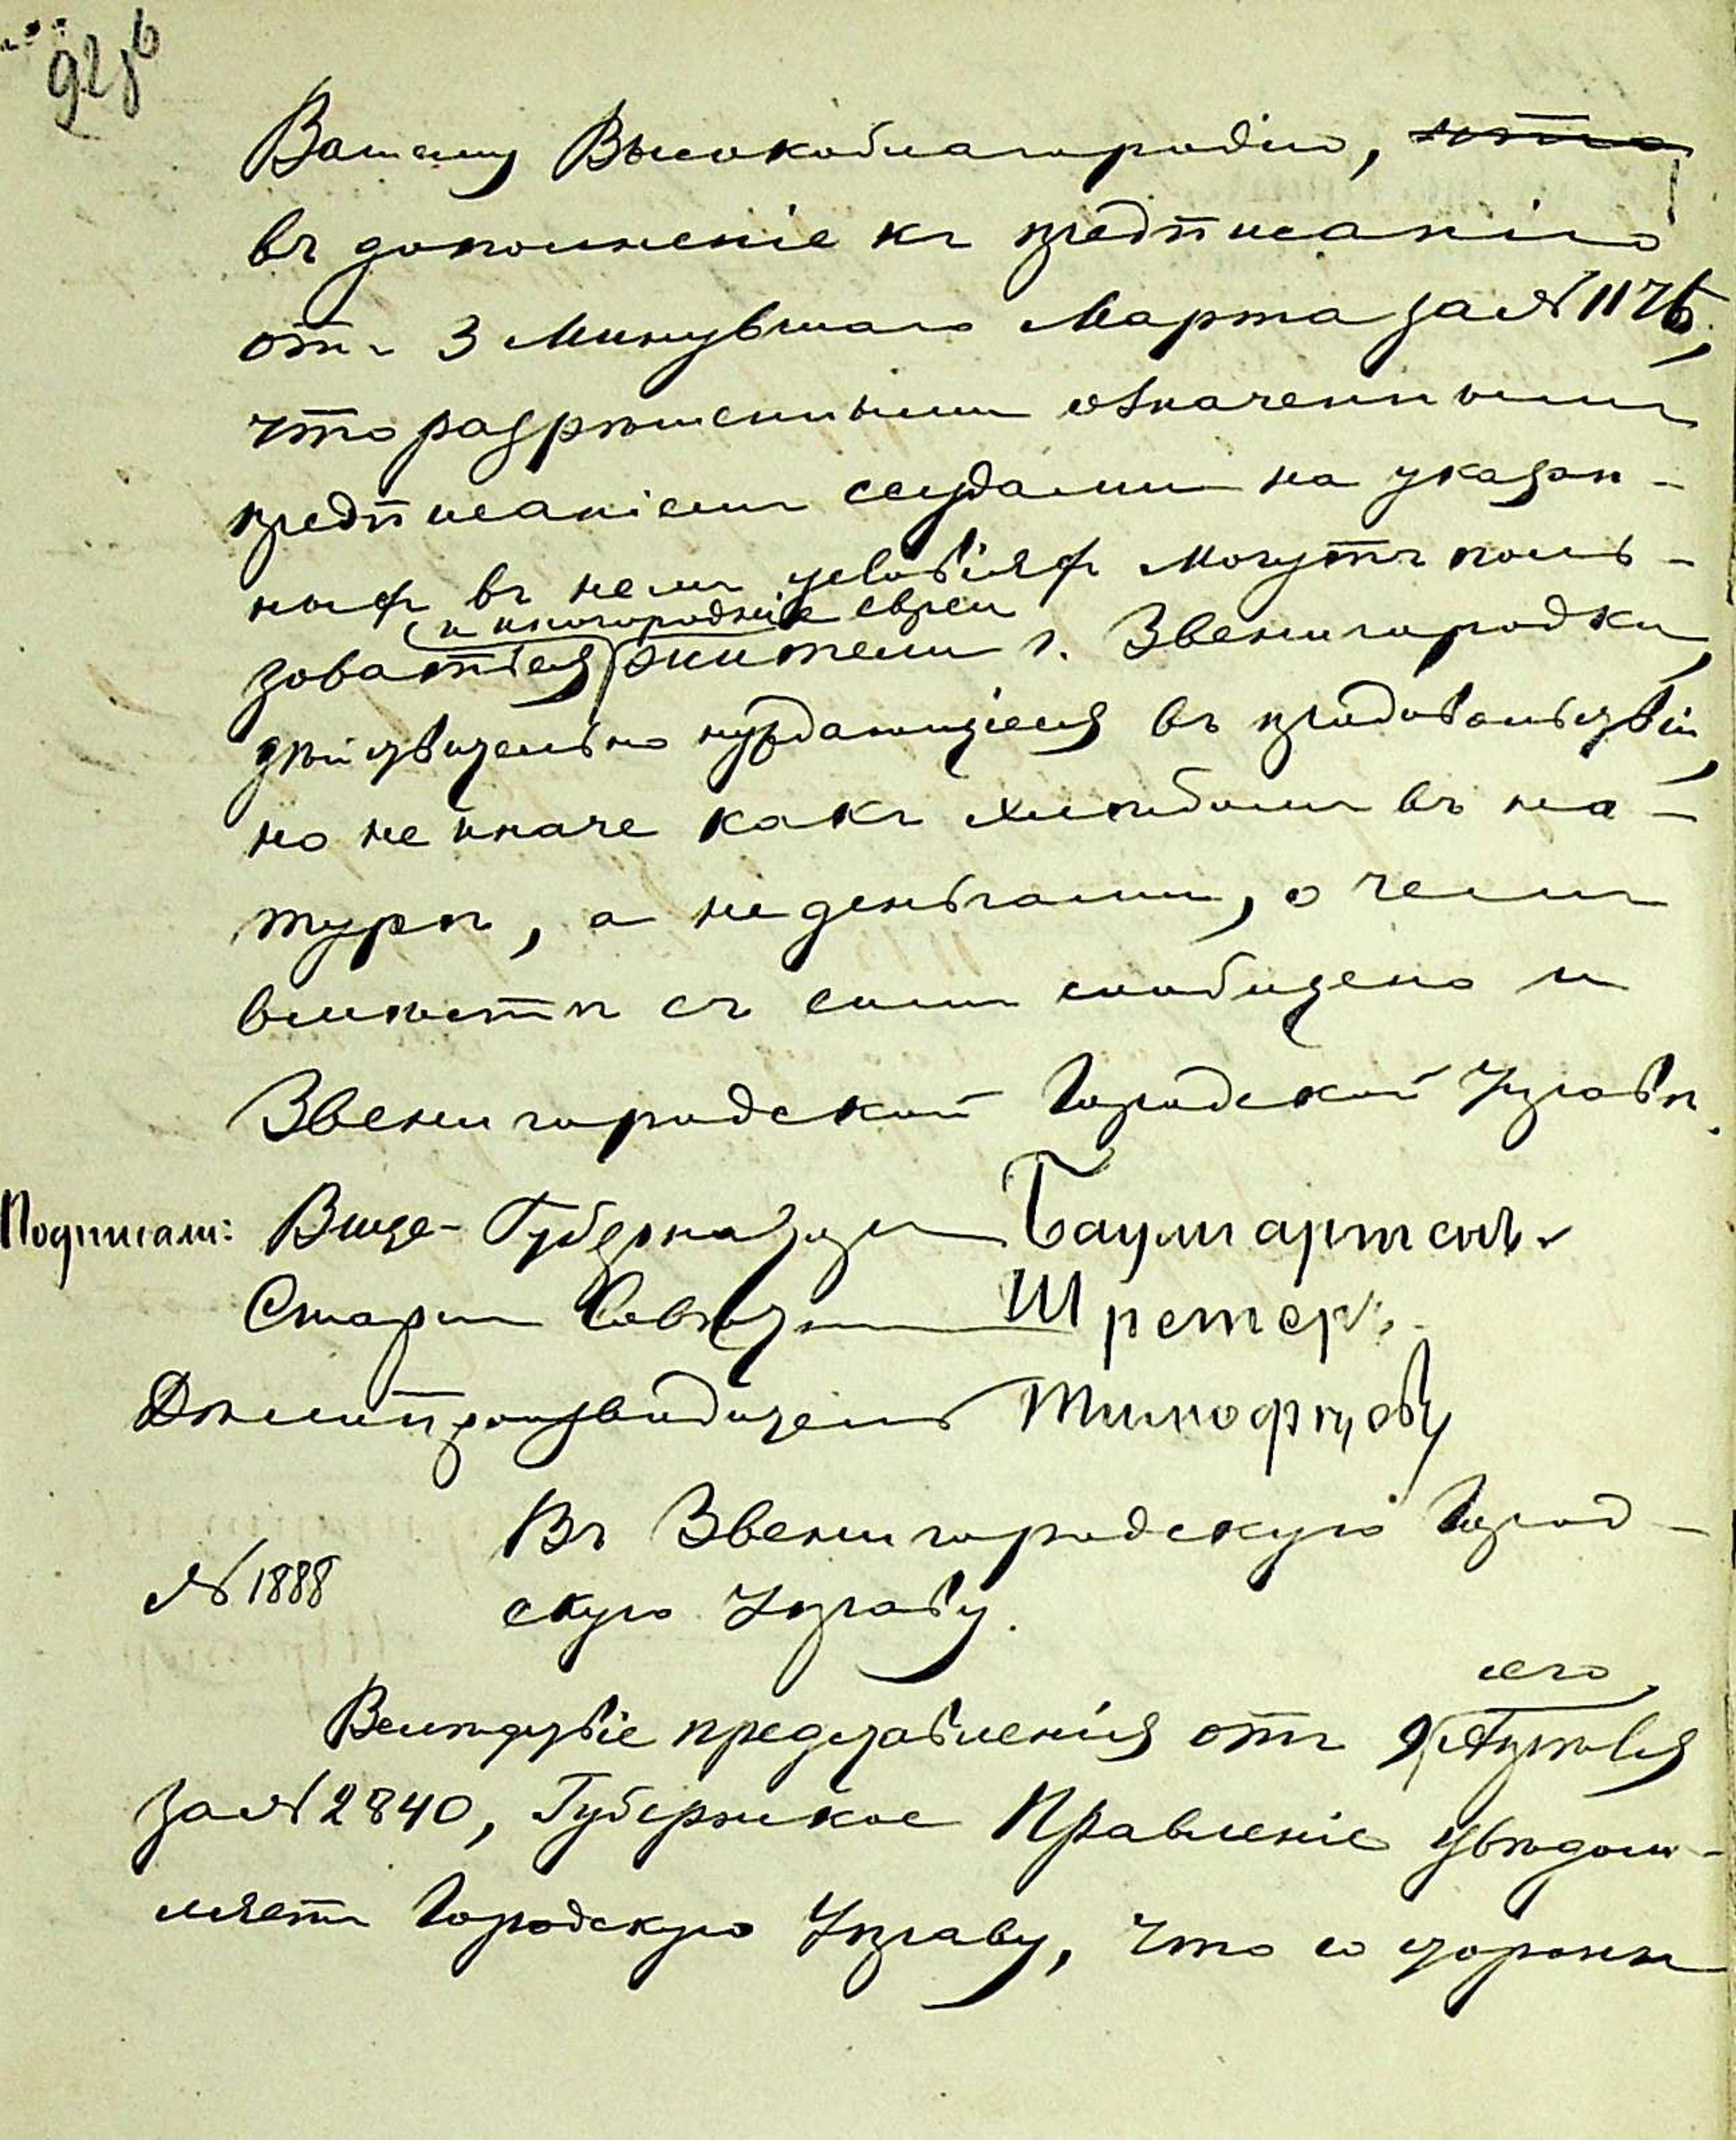 92 об
Вашему Высокоблагородію, что
въ дополненіе къ предписанію
отъ 3 минувшаго Марта за № 1176,
что разрѣшенными означеннымъ
предписаніемъ ссудами на указан-
ныхъ въ немъ условіяхъ могутъ поль-
и иногородніе евреи
зоваться жители г. Звенигородки,
дѣйствительно нуждающіеся въ продовольствіи,
но не иначе какъ хлѣбомъ въ на-
турѣ, а не деньгами, о чемъ
вмѣстѣ съ симъ сообщено и
Звенигородской Городской Управѣ.
Подписали: Вице-Губернаторъ Баумгартенъ.
Старш Совѣтн Шретеръ.
Дѣлопроизводитель
№ 1888
Въ Звенигородскую Город-
скую Управу.
сего
Вслѣдствіе представленія отъ 9 Апрѣля
за № 2840, Губернское Правленіе увѣдом-
ляетъ Городскую Управу, что со стороны